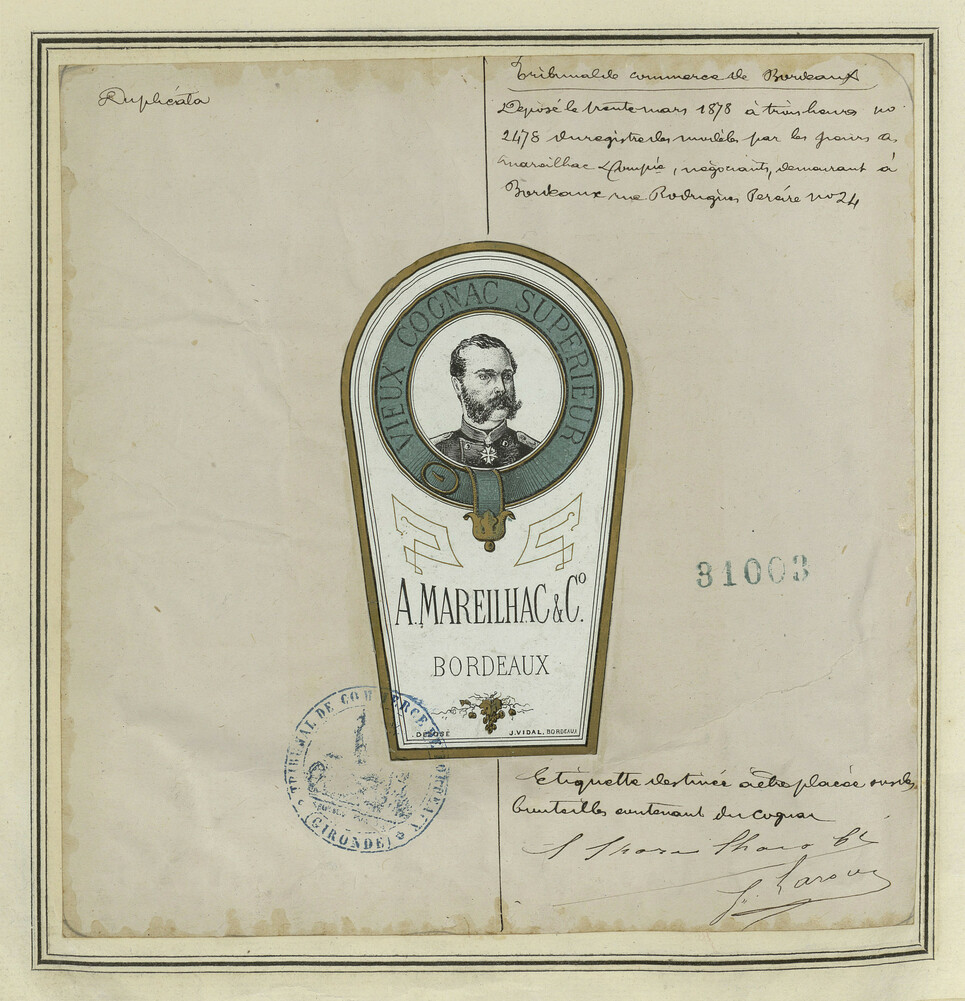 Duplicata
Tribunal de commerce de Bordeaux
Déposé le trente mars 1878 à trois heures no
2478 du registre des modèles par les sieurs A.
Mareilhac & Compie, négociants, demeurant à
Bordeaux rue Rodrigues Pereire no 24
VIEUX COGNAC SUPERIEUR
31003
A. MAREILHAC & Co.
BORDEAUX
DEPOSÉ
J. VIDAL, BORDEAUX
TRIBUNAL DE COMMERCE DE BORDEAUX
(GIRONDE)
Etiquette destinée à être placée sur des
bouteilles contenant du cognac